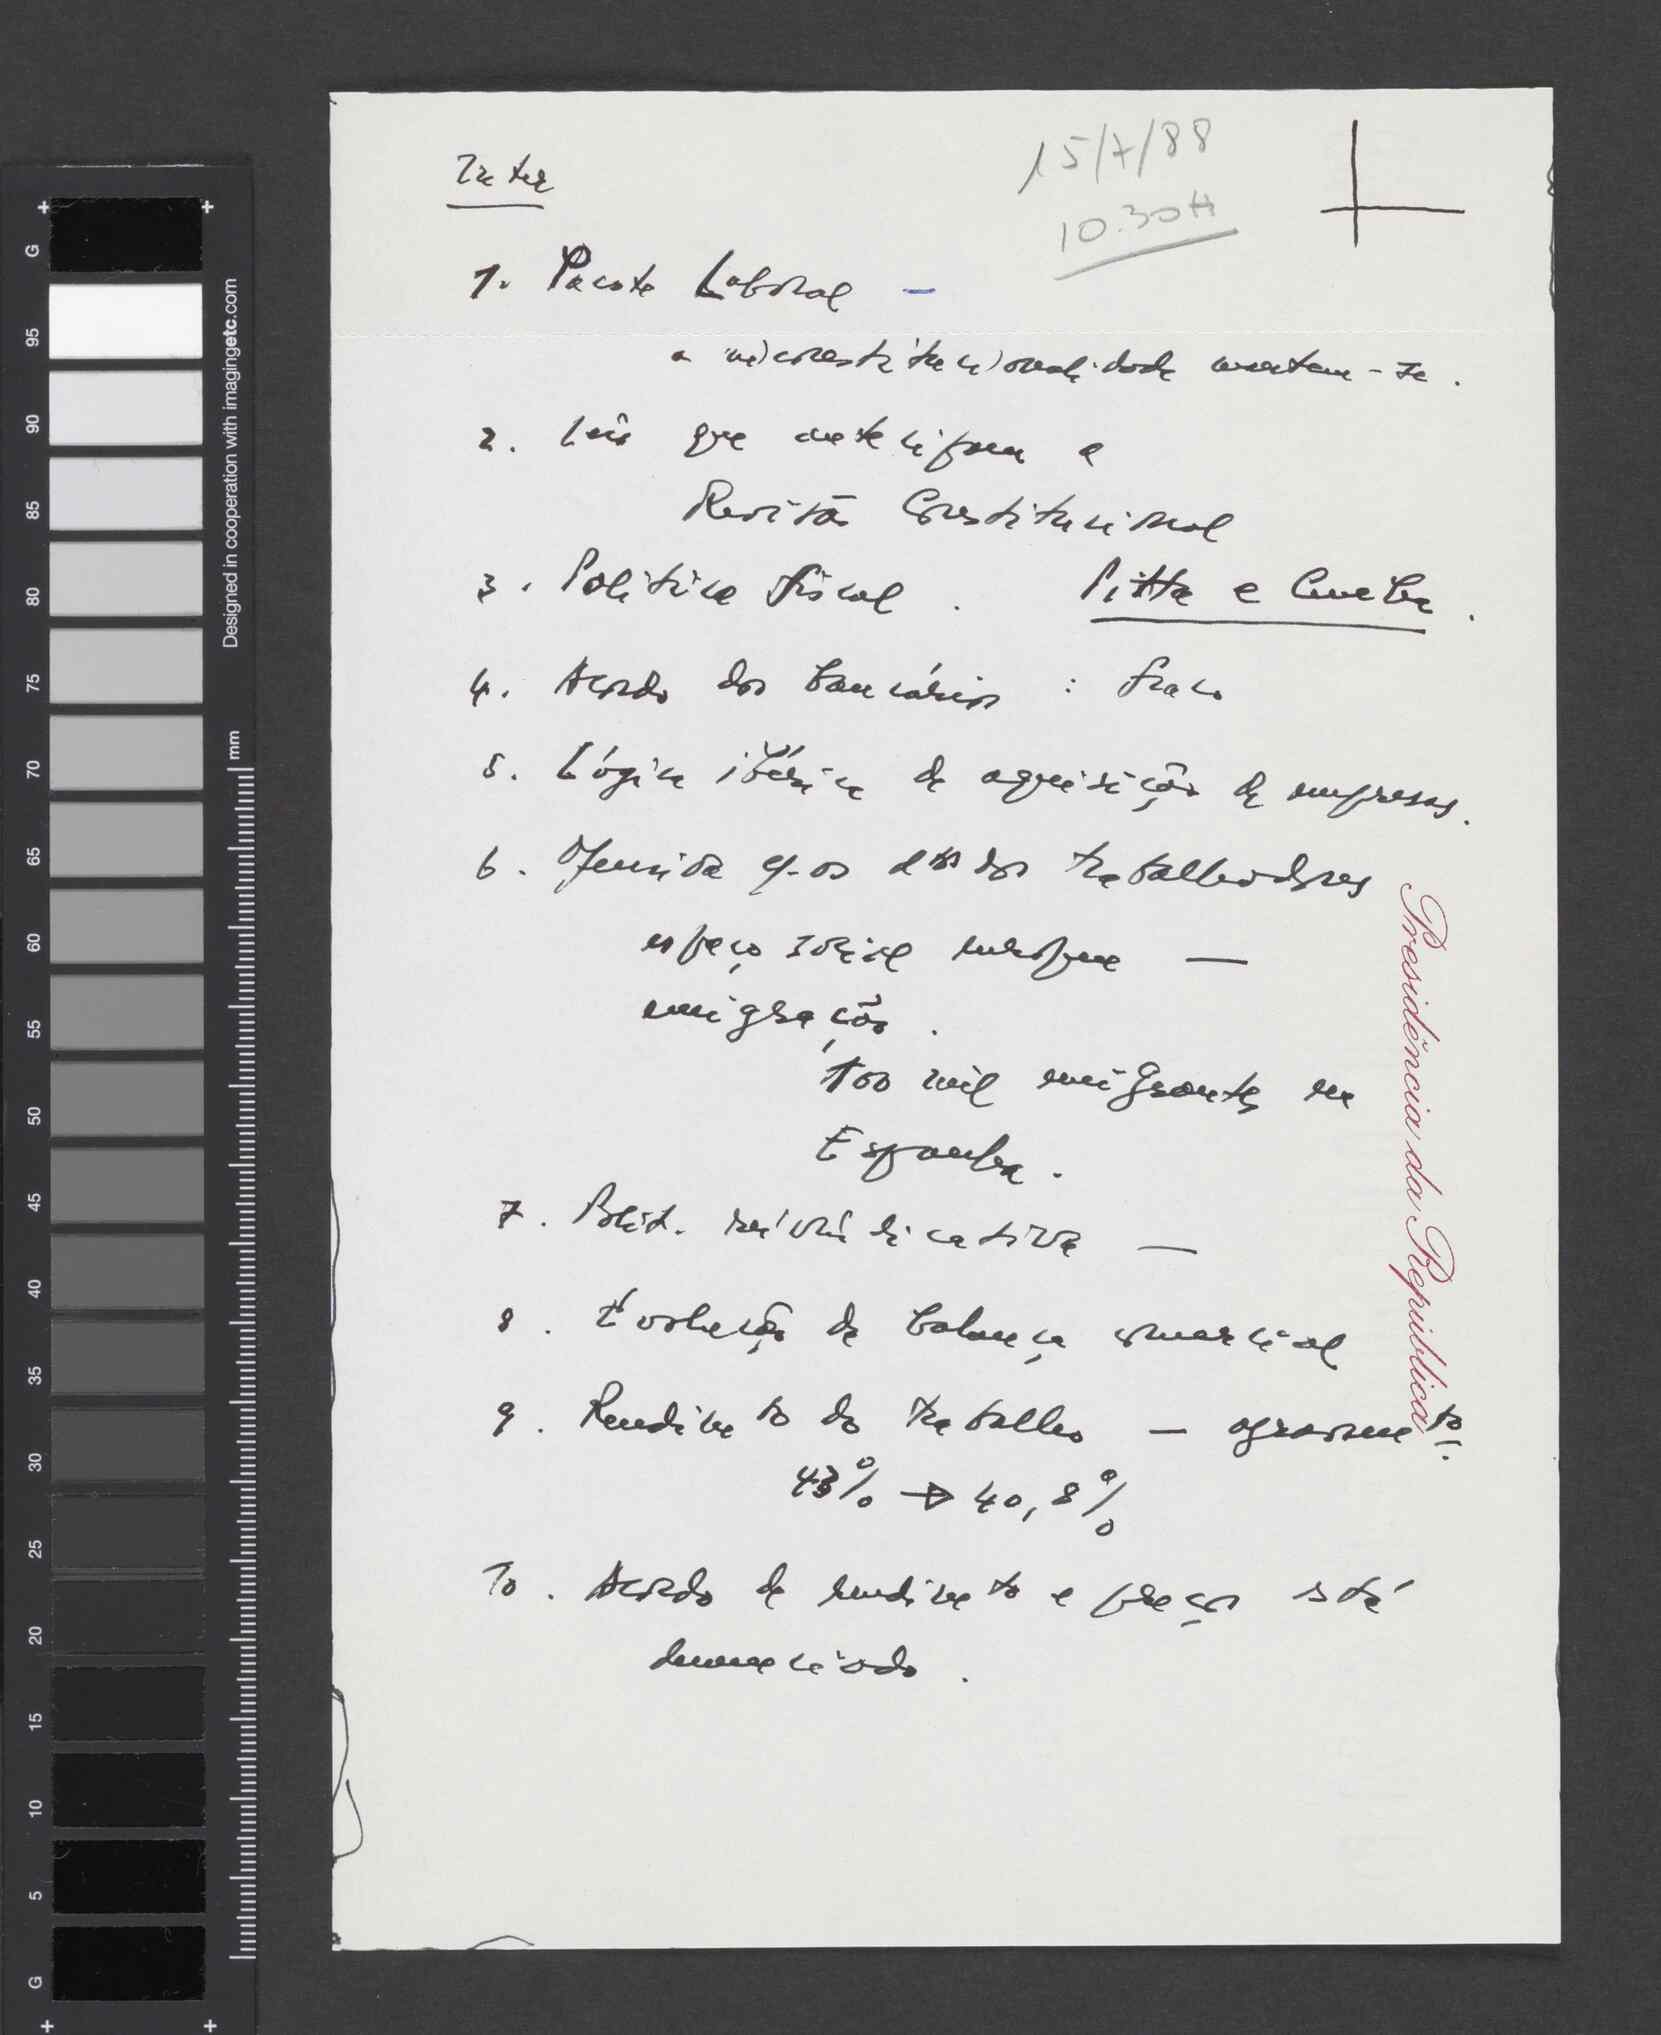 Inter
15/7/88
10.30H
1. Pacote Laboral –
a inconstitucionalidade mantem-se.
2. Leis que antecipam a
Revisão Constitucional
3. Politica fiscal. Pitta e Cunha.
4. Acordo dos bancários : fraco
5. Lógica ibérica de aquisição de empresas.
6. Ofensiva q. os dtos dos trabalhadores
espaço social europeu —
emigração.
100 mil emigrantes na
Espanha.
7. Polit. reivindicativa —
8. Evolução da balança comercial
9. Rendimto do trabalho — agravamto.
43% → 40,8%
10. Acordo de rendimto e preços está
denunciado.
Presidência da República
Designed in cooperation with imagingetc.com
mm
G
95
90
85
80
75
70
65
60
55
50
45
40
35
30
25
20
15
10
5
G